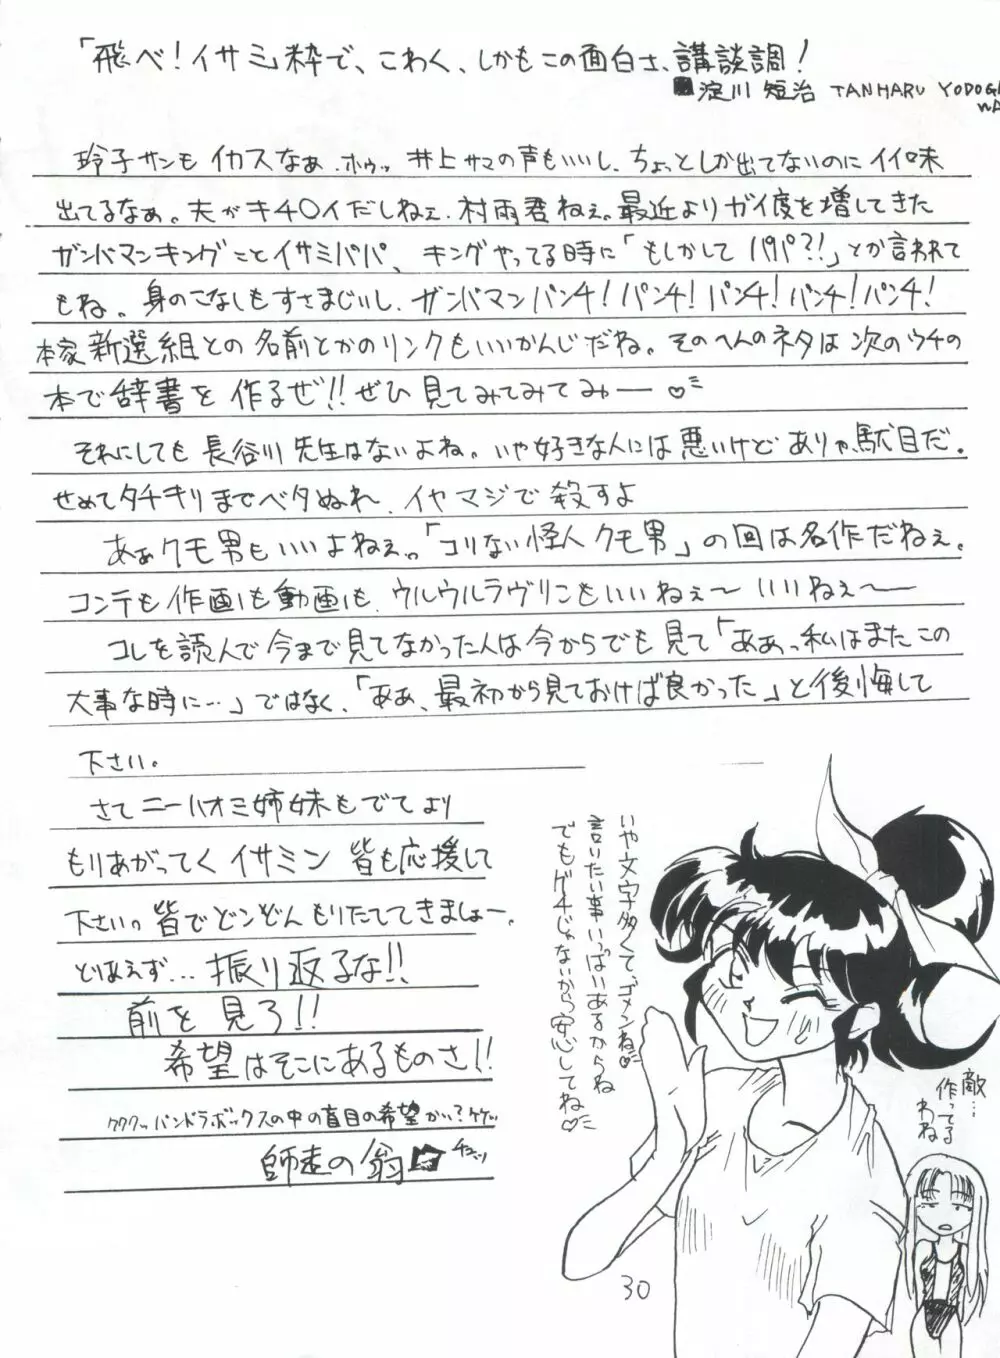 「飛べ!イサミ」粋で、こわく、しかもこの面白さ、講談調!
■淀川 短治 TANHARU YODOGAWA
玲子サンもイカスなぁ、ホウッ 井上サマの声もいいし、ちょっとしか出てないのにイイ味
出てるなぁ。夫がキ40イだしねぇ、村雨君ねぇ。最近よりガイ度を増してきた
ガンバマンキングことイサミパパ、キングやってる時に「もしかしてパパ?!」とか言われて
もね。身のこなしもすさまじいし、ガンバマンパンチ!パンチ!パンチ!パンチ!パンチ!
本家新選組との名前とかのリンクもいいかんじだね。そのへんのネタは次のウチの
本で辞書を作るぜ!!ぜひ見てみてみてみゅー♡
それにしても長谷川先生はないよね。いや好きな人には悪いけどありゃ駄目だ。
せめてタチキリまでベタぬれ、イヤマジで殺すよ
あぁクモ男もいいよねぇ。「コリない怪人クモ男」の回は名作だねぇ。
コンテも作画も動画も、ウルウルラヴリンもいいねぇ〜いいねぇ〜
コレを読んで今まで見てなかった人は今からでも見て「ああっ私はまたこの
大事な時に…」ではなく、「ああ、最初から見ておけば良かった」と後悔して
下さい。
さてニーハオミ姉妹もでてより
もりあがってくイサミン 皆も応援して
下さいっ皆でどンどんもりたててきましょー。
とりあえず…振り返るな!!
前を見ろ!!
希望はそこにあるものさ!!
クククッパンドラボックスの中の盲目の希望かい?ケケッ
師走の翁 チュッ
いや文字多くて、ゴメンね♡
言いたい事いっぱいあるからね
でもグチじゃないから安心してね♡
敵…
作ってる
わね
30